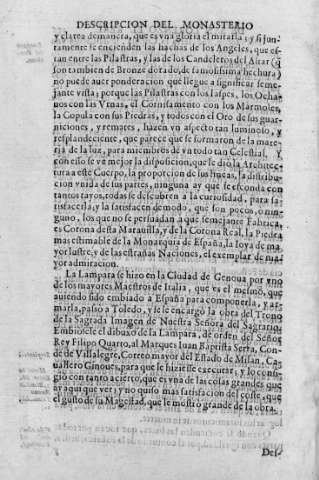 DESCRIPCION DEL MONASTERIO
y clarea demanera, que es vna gloria el mirarla; y si jun-
tamente se encienden las hachas de los Angeles, que es-
tan entre las Pilastras, y las de los Candeleros del Altar (q̃
son tambien de Bronze dorado, de famosissima hechura)
no puede auer ponderacion que llegue a significar seme-
jante vista; porque las Pilastras con los Iaspes, los Ocha-
uos con las Vrnas, el Cornisamento con los Marmoles,
la Copula con sus Piedras, y todos con el Oro de sus guar-
niciones, y remates, hazen vn aspecto tan luminoso, y
resplandeciente, que parece que se formaron de la mate-
ria de la luz, para miembros de vn todo tan Celestial, y
con esso se ve mejor la disposicion, que se diò la Architec-
tura a este Cuerpo, la proporcion de sus lineas, la distribu-
cion vnida de sus partes, ninguna ay que se esconda con
tantos rayos, todas se descubren a la curiosidad, para sa-
tisfacerla, y la satisfacen de modo, que son pocos, o nin-
guno, los que no se persuadan à que semejante Fabrica,
es Corona desta Marauilla, y de la Corona Real, la Piedra
mas estimable de la Monarquia de España, la Ioya de ma-
yor lustre, y de las estrañas Naciones, el exemplar de ma-
yor admiracion.
La Lampara se hizo en la Ciudad de Genoua por vno
de los mayores Maestros de Italia, que es el mesmo, que
auiendo sido embiado a España para componerla, y ar-
marla, passò a Toledo, y se le encargò la obra del Trono
de la Sagrada Imagen de Nuestra Señora del Sagrario.
Embiòsele el dibuxo de la Lampara, de orden del Señor
Rey Filipo Quarto, al Marques Iuan Baptista Serra, Con-
de de Villalegre, Correo mayor del Estado de Milan, Ca-
uallero Ginoues, para que se hiziesse executar; y lo consi-
guiò con tanto acierto, que es vna de las cosas grandes que
ay aqui que ver; y no quiso mas satisfacion del coste, que
el gusto de su Magestad, que le mostrò grande de la obra.
Des-